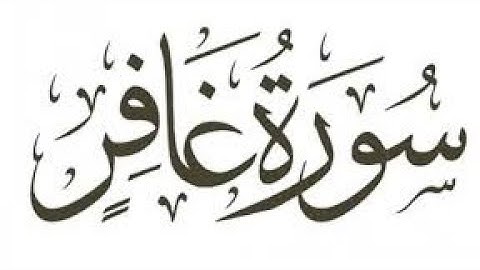 سُورَةُ غَافِرٍ